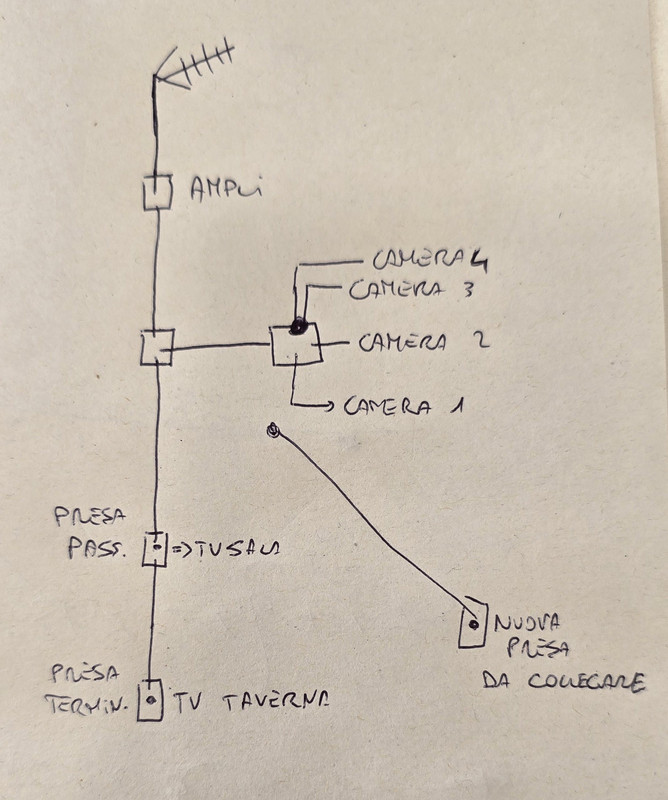 AMPLi
CAMERA 4
CAMERA 3
CAMERA 2
CAMERA 1
PRESA
PASS. => TV SALA
NUOVA
PRESA
DA COLLEGARE
PRESA
TERMIN. TV TAVERNA